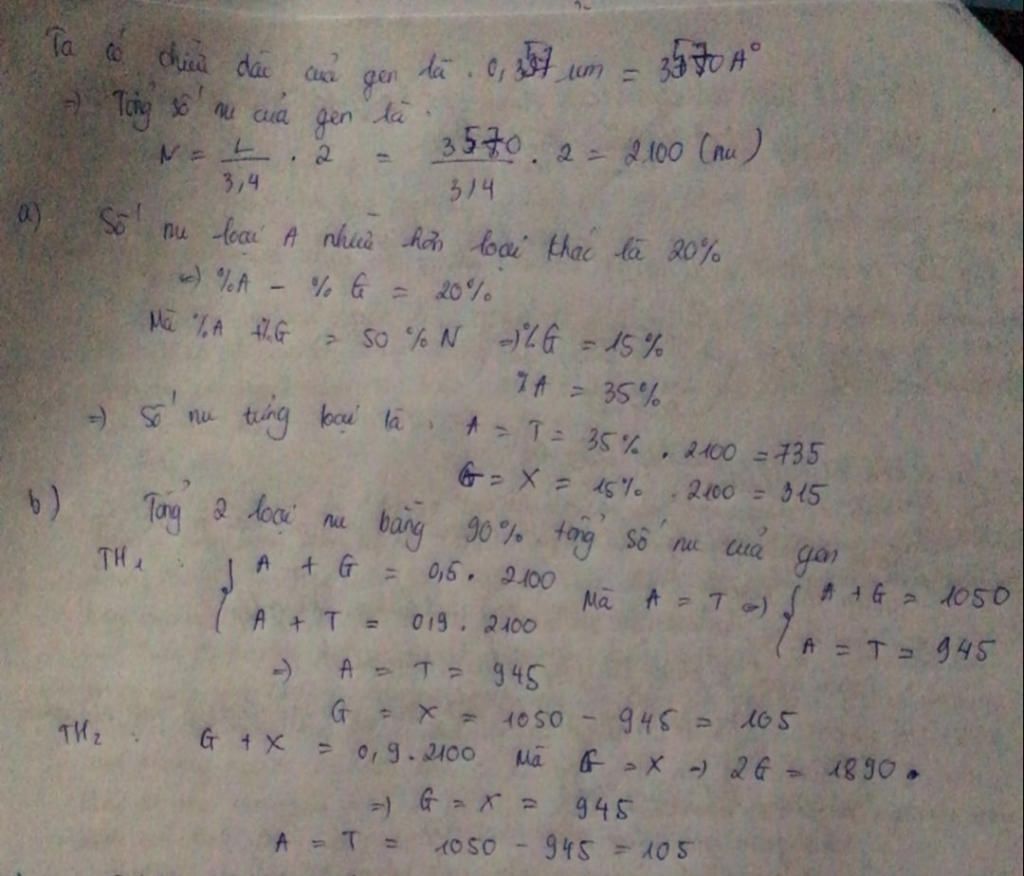 Ta có chiều dài của gen là . 0,357 um = 3570 A°
=) Tổng số nu của gen là .
N = L/3,4 . 2 = 3570/3,4 . 2 = 2100 (nu)
a) Số nu loại A nhiều hơn loại khác là 20%
=) %A - % G = 20%
Mà %A + %G = 50 % N =) %G = 15 %
%A = 35%
=) Số nu từng loại là . A = T = 35% . 2100 = 735
G = X = 15% . 2100 = 315
b) Tổng 2 loại nu bằng 90% tổng số nu của gen
TH1 : { A + G = 0,5 . 2100
A + T = 0,9 . 2100 Mà A = T =) { A + G = 1050
A = T = 945
=) A = T = 945
G = X = 1050 - 945 = 105
TH2 : G + X = 0,9 . 2100 Mà G = X =) 2G = 1890 .
=) G = X = 945
A = T = 1050 - 945 = 105